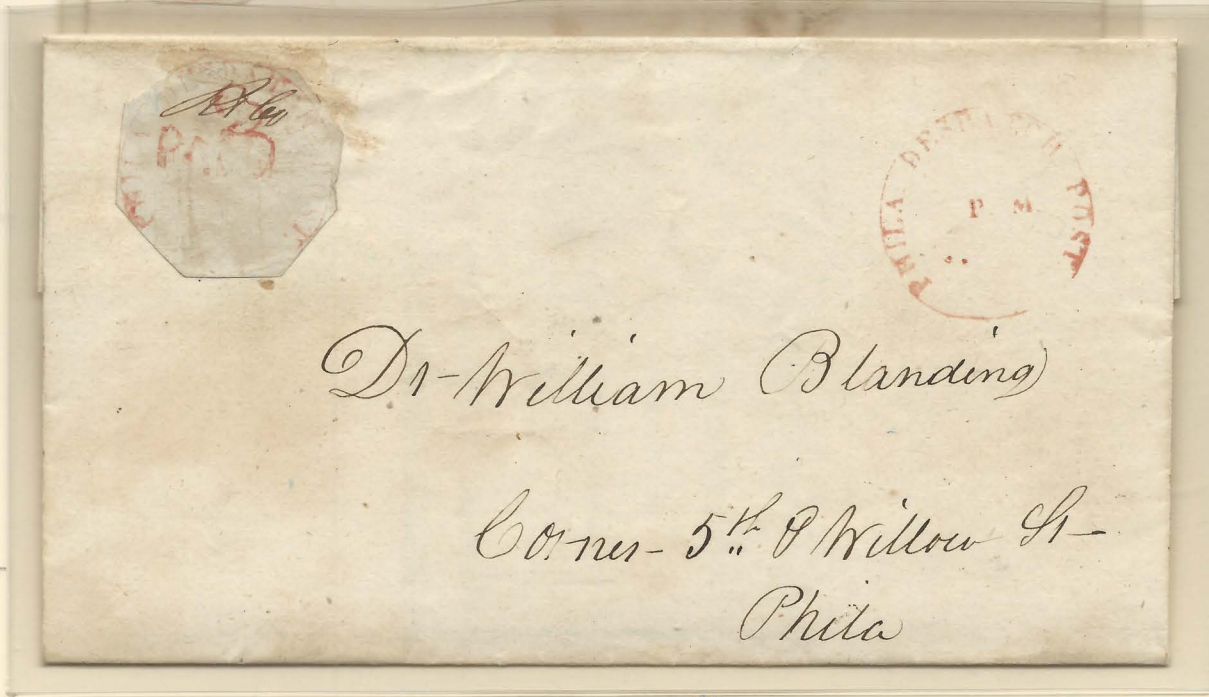 PAID
PHILA DESPATCH POST
P M
Dr William Blanding
Corner 5th & Willow St
Phila